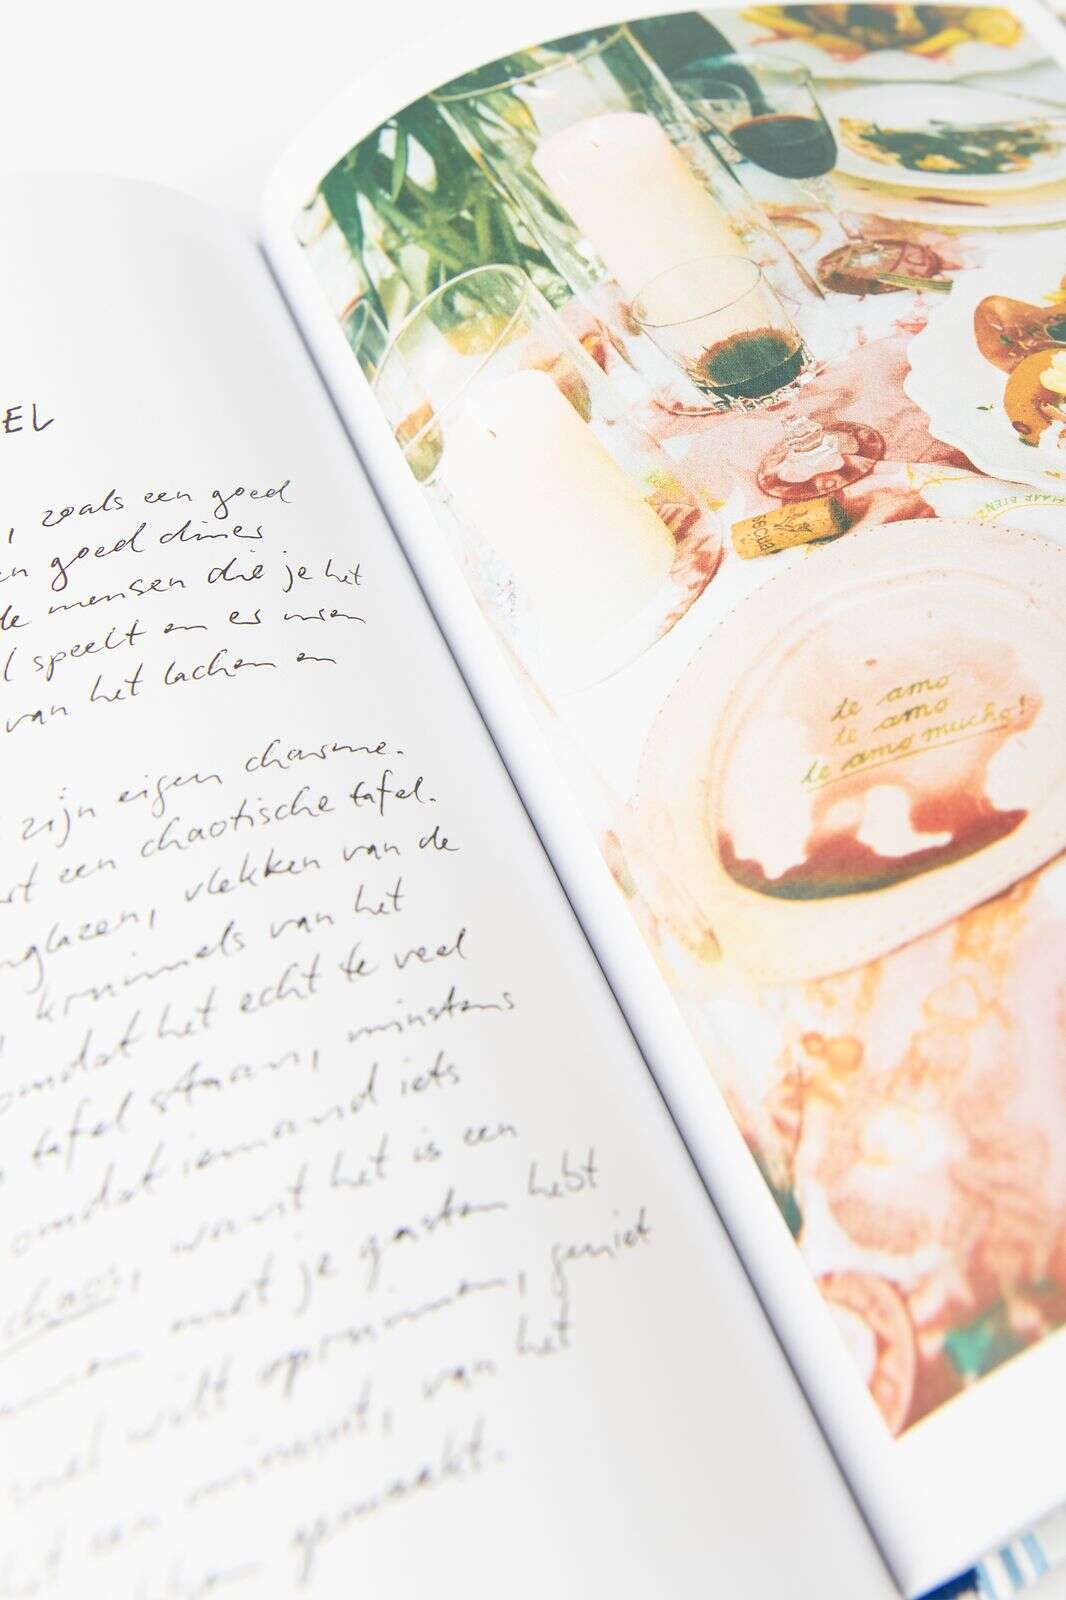 EL
, zoals een goed
en goed diner
de mensen die je het
l speelt en er men
van het lachen en
zijn eigen charme.
rt een chaotische tafel.
nglazen, vlekken van de
, kruimels van het
omdat het echt te veel
tafel staan, minstens
omdat iemand iets
chaos, want het is een
met je gasten hebt
snel wilt opruimen, geniet
het een minuut, van het
gemaakt.
te amo
te amo
te amo mucho!